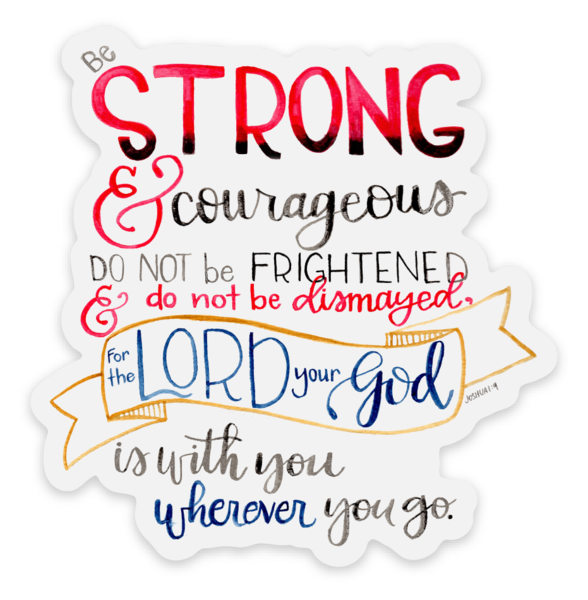 Be
STRONG
& courageous
DO NOT be FRIGHTENED
& do not be dismayed,
For the LORD your God
JOSHUA 1:9
is with you
wherever you go.